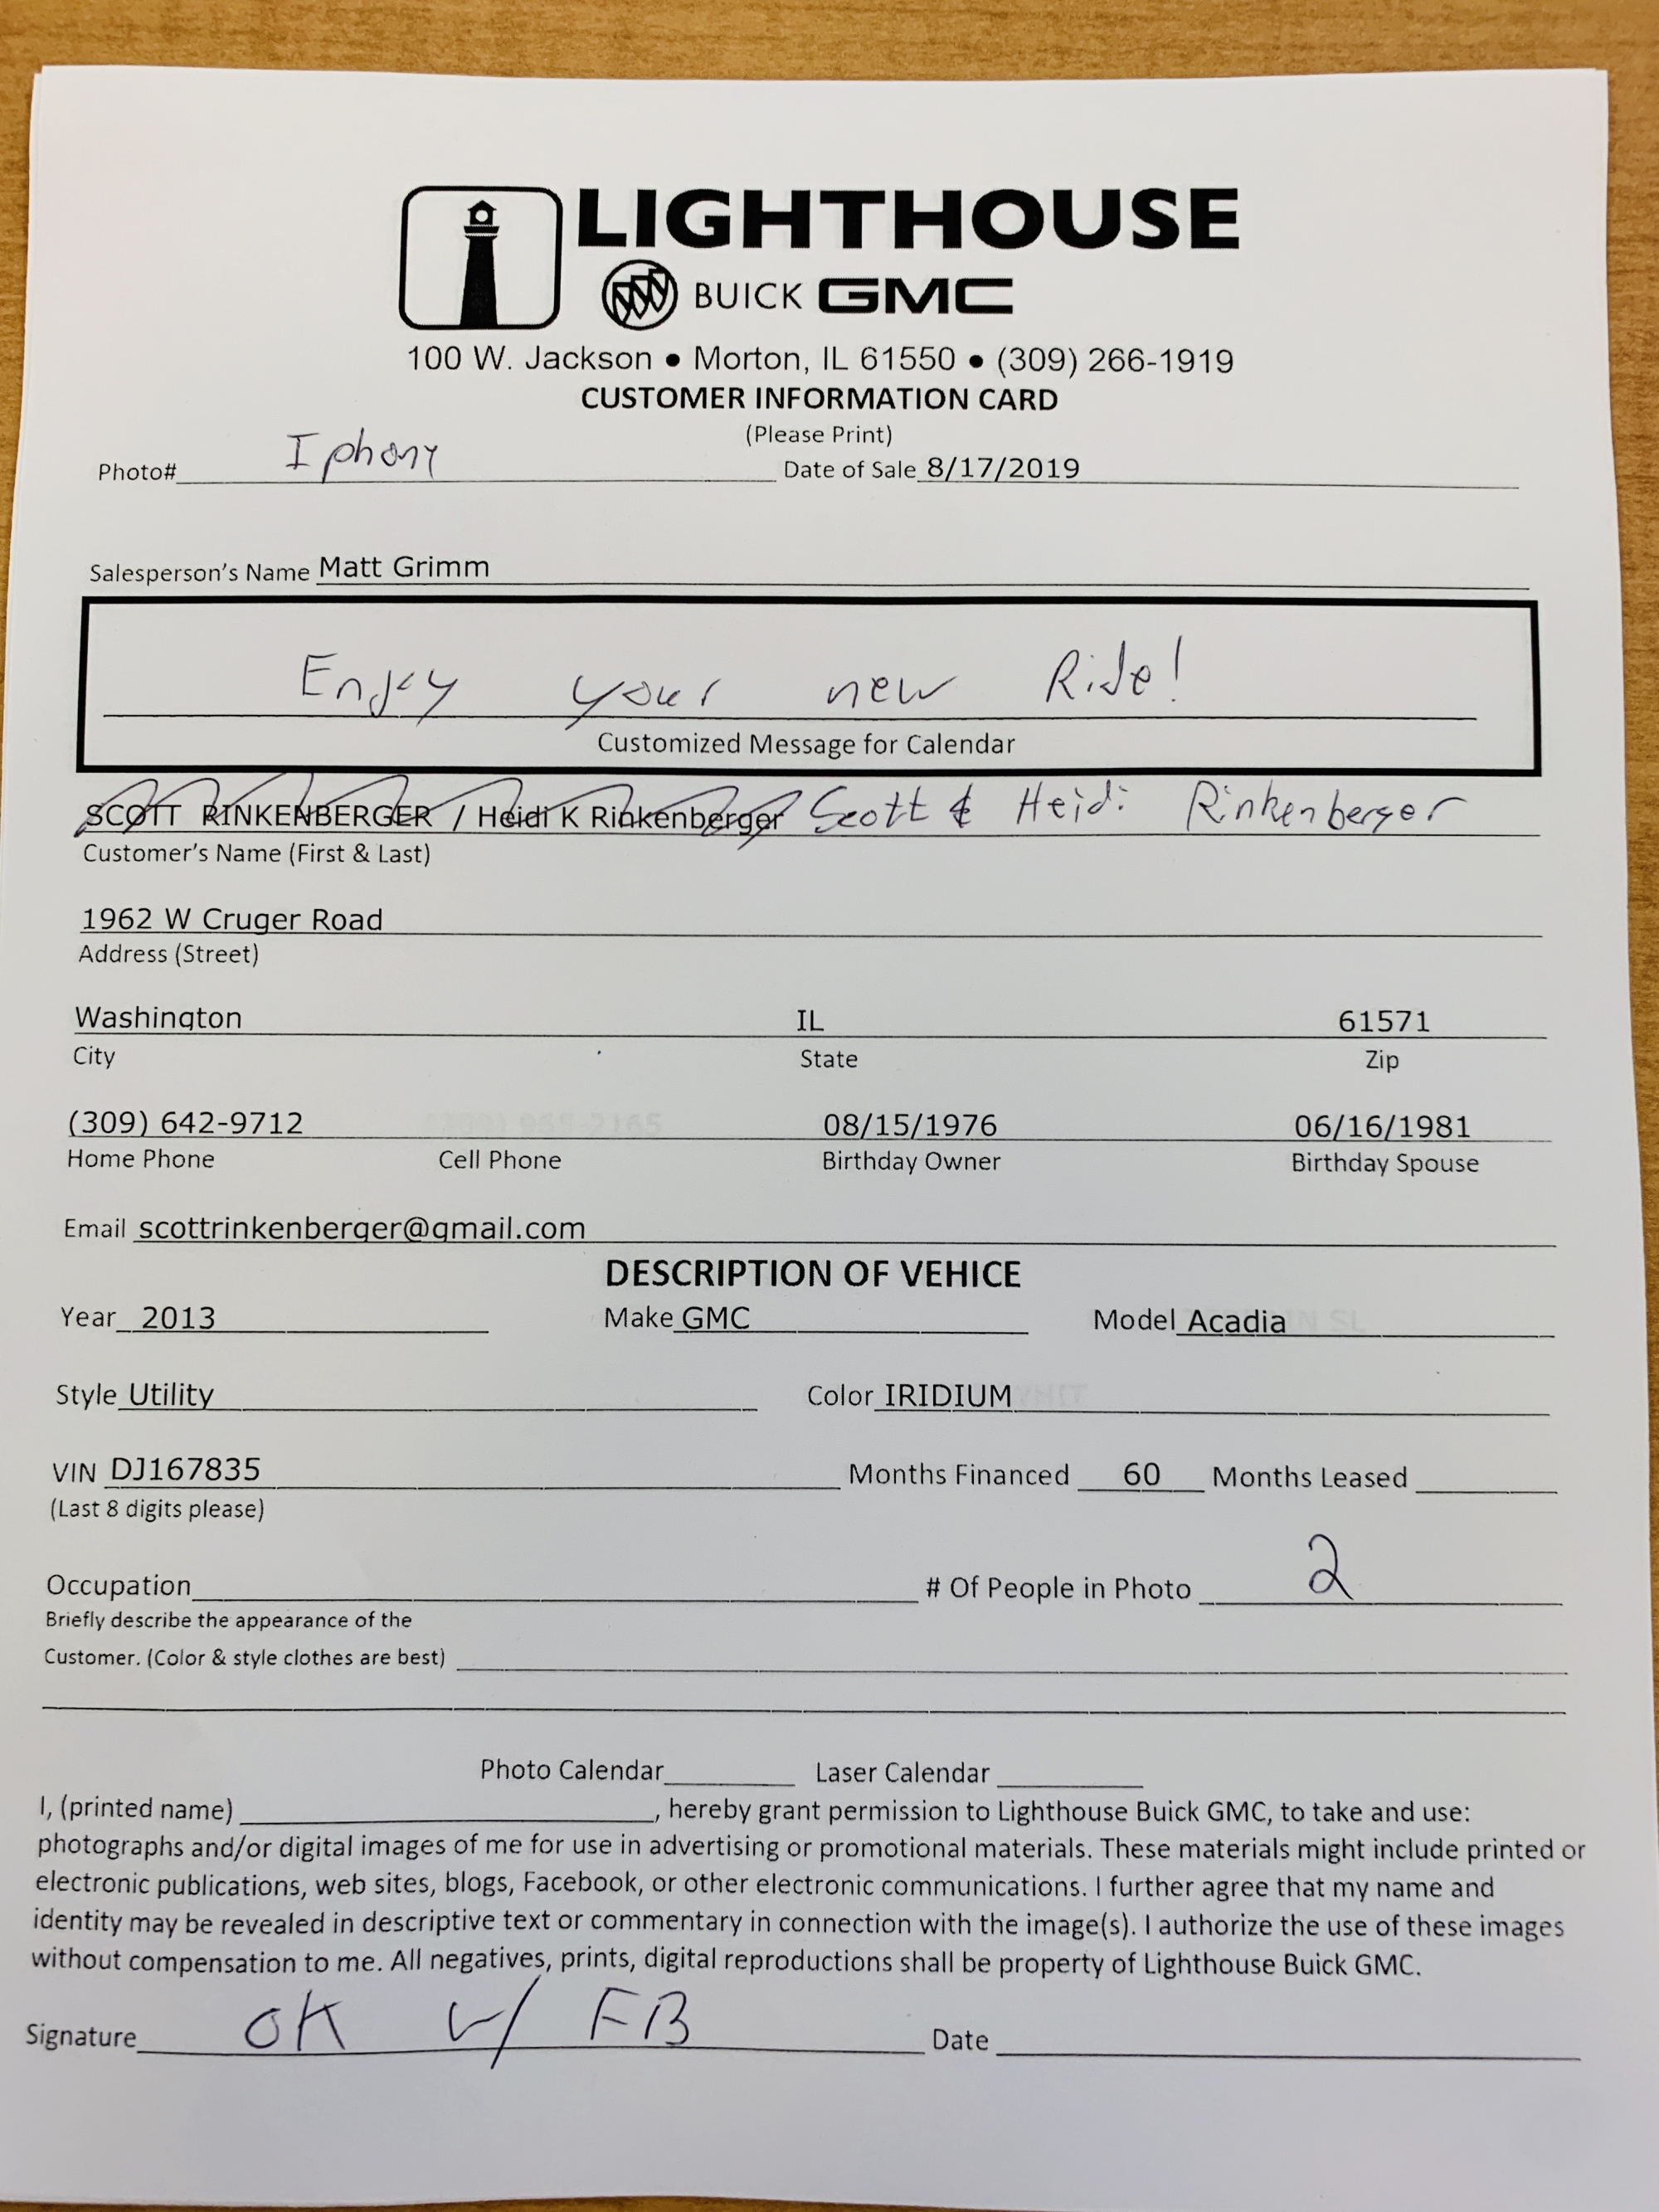 LIGHTHOUSE
BUICK GMC
100 W. Jackson ● Morton, IL 61550 ● (309) 266-1919
CUSTOMER INFORMATION CARD
(Please Print)
Photo# Iphony Date of Sale 8/17/2019
Salesperson's Name Matt Grimm
Enjoy your new Ride!
Customized Message for Calendar
SCOTT RINKENBERGER / Heidi K Rinkenberger Scott & Heidi Rinkenberger
Customer's Name (First & Last)
1962 W Cruger Road
Address (Street)
Washington IL 61571
City State Zip
(309) 642-9712 08/15/1976 06/16/1981
Home Phone Cell Phone Birthday Owner Birthday Spouse
Email scottrinkenberger@gmail.com
DESCRIPTION OF VEHICE
Year 2013 Make GMC Model Acadia
Style Utility Color IRIDIUM
VIN DJ167835 Months Financed 60 Months Leased
(Last 8 digits please)
Occupation # Of People in Photo 2
Briefly describe the appearance of the
Customer. (Color & style clothes are best)
Photo Calendar Laser Calendar
I, (printed name) , hereby grant permission to Lighthouse Buick GMC, to take and use:
photographs and/or digital images of me for use in advertising or promotional materials. These materials might include printed or
electronic publications, web sites, blogs, Facebook, or other electronic communications. I further agree that my name and
identity may be revealed in descriptive text or commentary in connection with the image(s). I authorize the use of these images
without compensation to me. All negatives, prints, digital reproductions shall be property of Lighthouse Buick GMC.
Signature OK w/ FB Date